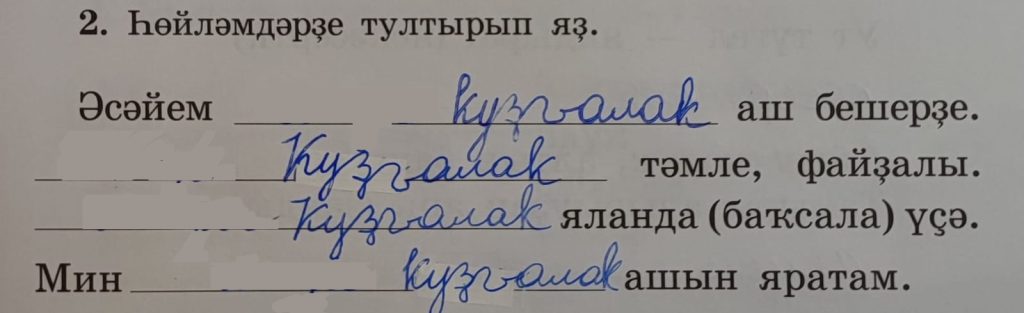 2. Һөйләмдәрҙе тултырып яҙ.
Әсәйем ______ кузғалак аш бешерҙе.
Кузғалак тәмле, файҙалы.
Кузғалак яланда (баҡсала) үҫә.
Мин кузғалак ашын яратам.